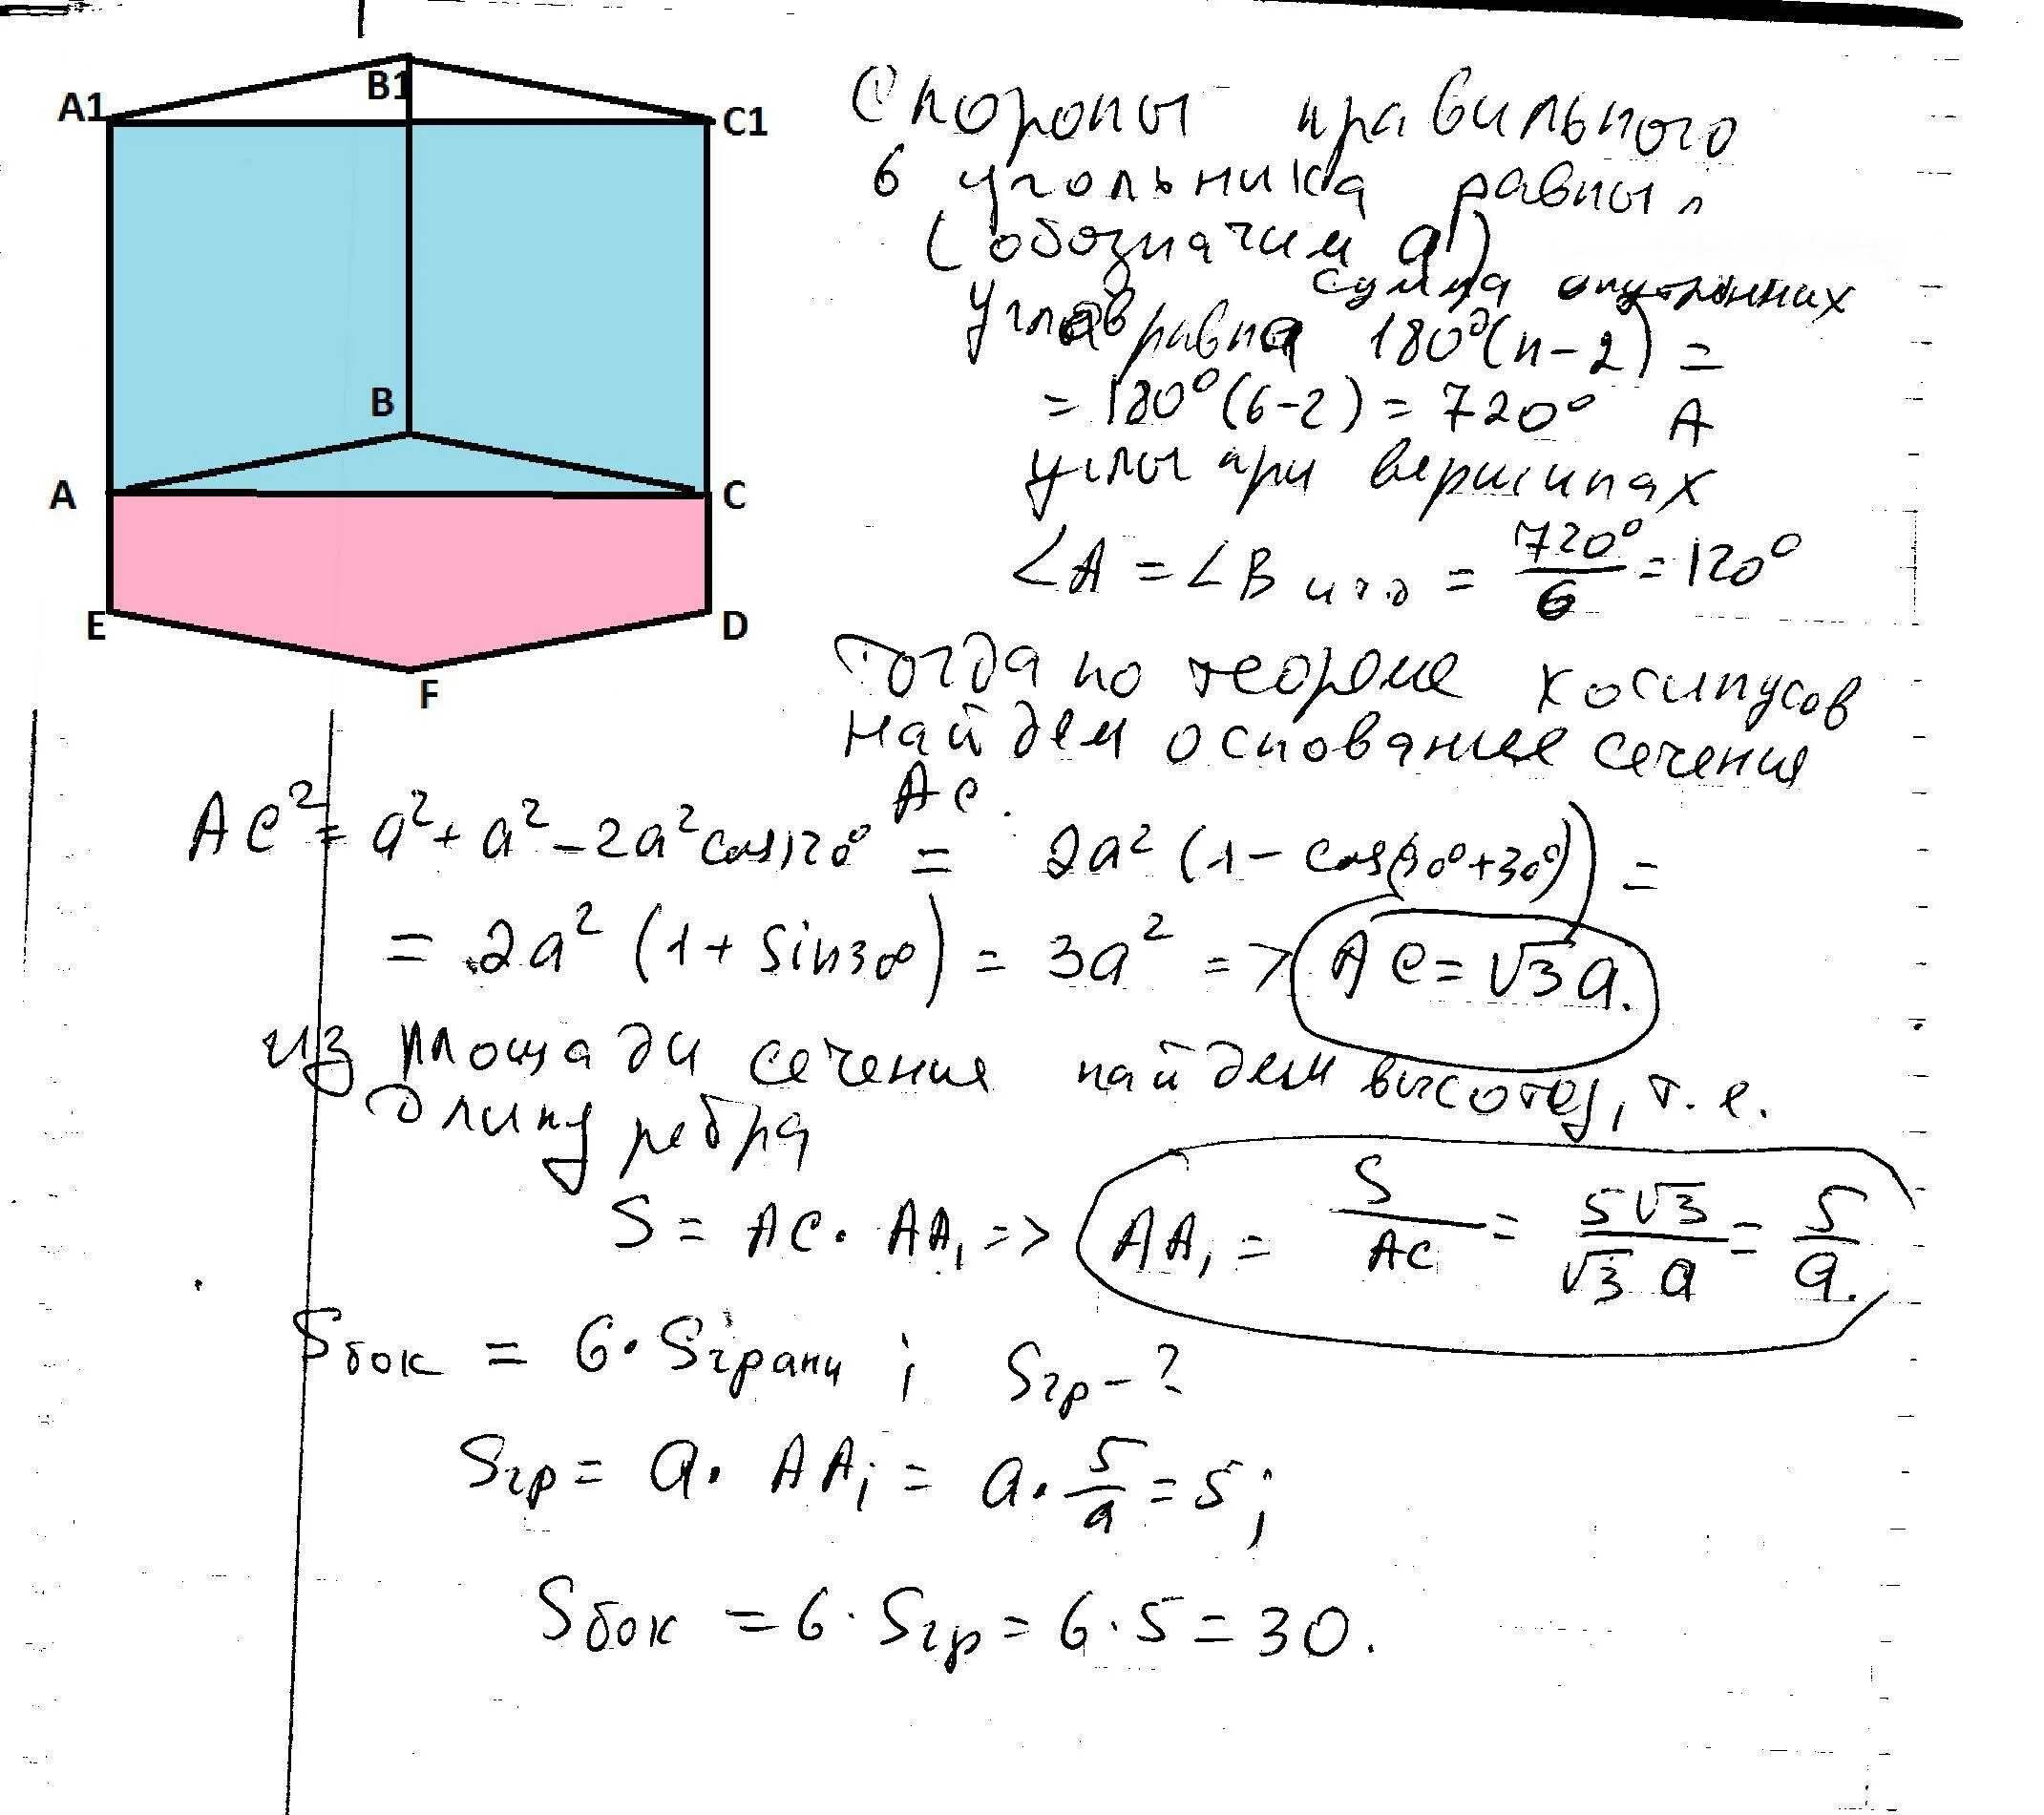 A1
B1
C1
B
A
C
E
D
F
Стороны правильного
6 угольника равны.
(обозначим a)
сумма внутренних
углов равна 180°(n-2) =
= 180°(6-2) = 720° А
углы при вершинах
∠A = ∠B и т.д = 720°/6 = 120°
тогда по теореме косинусов
найдем основание сечения
AC.
AC² = a² + a² - 2a² cos120° = 2a² (1 - cos(90°+30°)) =
= 2a² (1 + sin30°) = 3a² => AC = √3 a.
из площади сечения найдем высоту, т.е.
длину ребра
S = AC · AA₁ => AA₁ = S/AC = 5√3/√3 a = 5/a.
Sбок = 6 · Sграни ; Sгр - ?
Sгр = a · AA₁ = a · 5/a = 5;
Sбок = 6 · Sгр = 6 · 5 = 30.